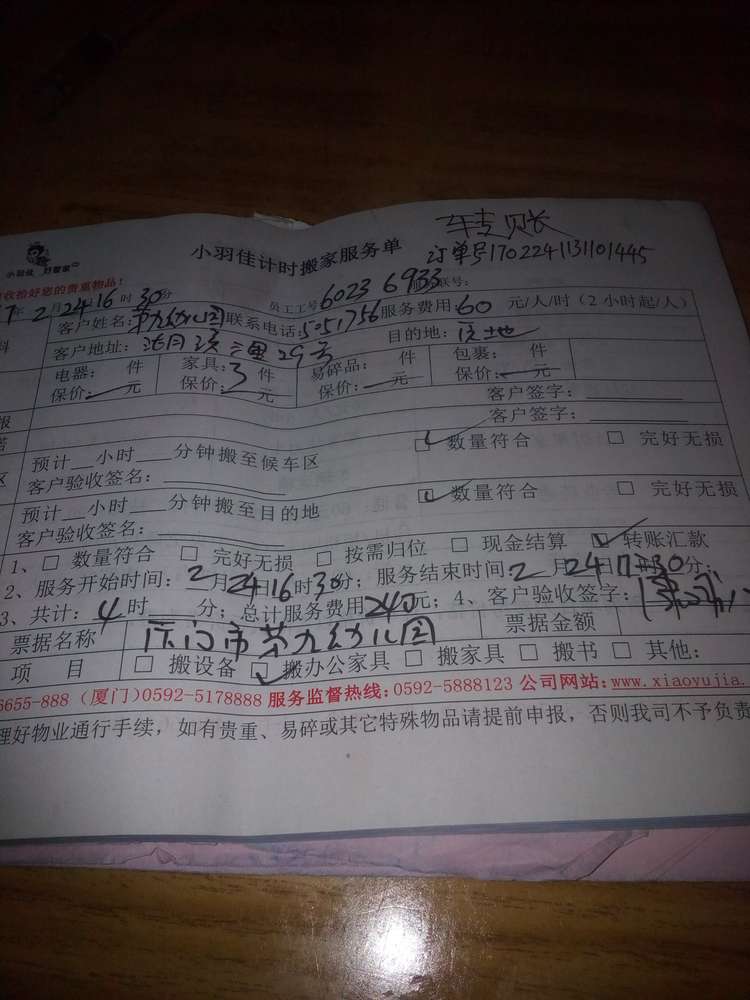 转账
小羽佳计时搬家服务单
订单号170224113101445
小羽佳 好管家
收拾好您的贵重物品！
7年2月24 16时30分 员工工号6023 6933 联号：
客户姓名：第九幼儿园 联系电话：5051756 服务费用60 元/人/时（2小时起/人）
客户地址： 29号 目的地：
电器： 件 家具：3件 易碎品： 件 包裹： 件
保价：—元 保价：—元 保价：—元 保价：—元
客户签字：
客户签字：
预计__小时__分钟搬至候车区 ☑数量符合 □完好无损
客户验收签名：
预计__小时__分钟搬至目的地 ☑数量符合 □完好无损
客户验收签名：
1、□数量符合 □完好无损 □按需归位 □现金结算 ☑转账汇款
2、服务开始时间：2月24日16时30分；服务结束时间：2月24日17时30分；
3、共计：4时 分；总计服务费用240元；4、客户验收签字：
票据名称 厦门市第九幼儿园 票据金额
项 目 □搬设备 ☑搬办公家具 □搬家具 □搬书 □其他：
6655-888（厦门）0592-5178888 服务监督热线：0592-5888123 公司网站：www.xiaoyujia.
理好物业通行手续，如有贵重、易碎或其它特殊物品请提前申报，否则我司不予负责